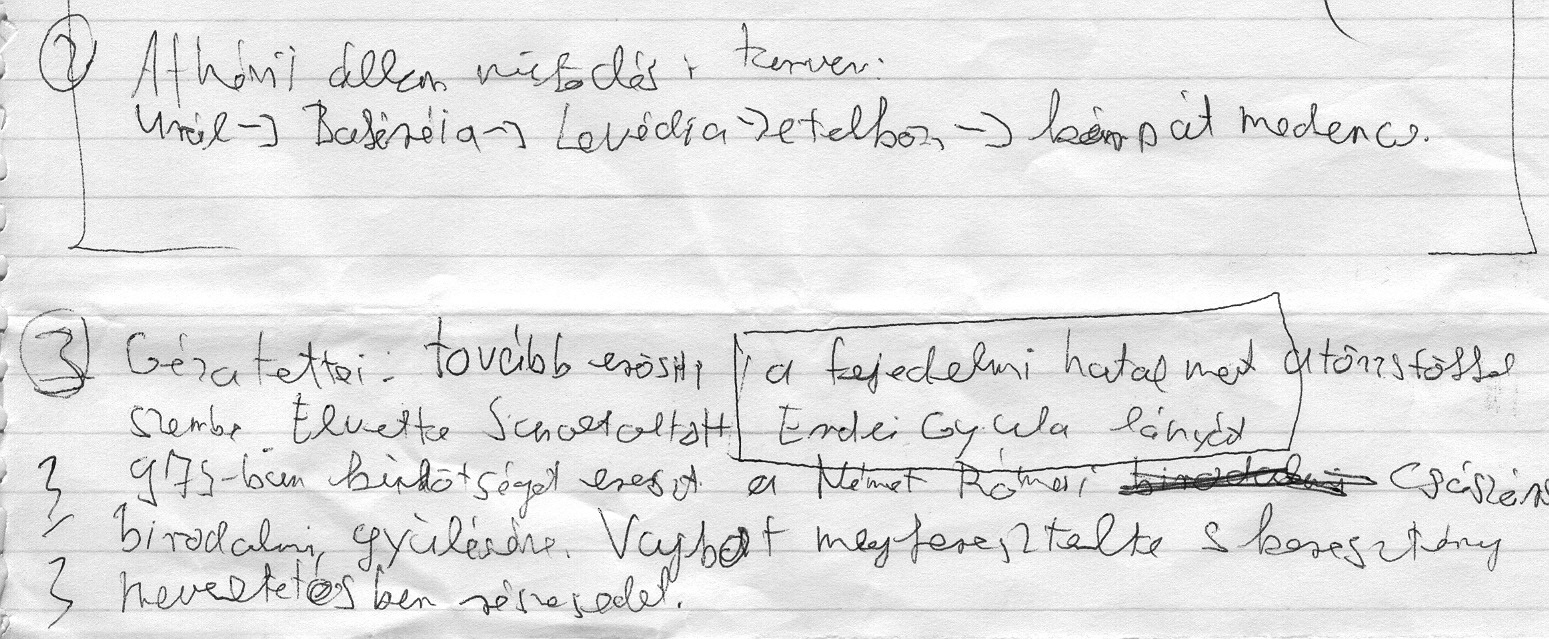 ② A honi állam
Urál → Baskíria → Levédia → etelköz → kárpát medence.
③ Géza tettei: tovább erősíti a fejedelmi hatalmat a törzsfőkkel
szembe Elvette Saroltot Erdei Gyula lányát
973-ban követséget a Német Római Császár
birodalmi gyűlésére. Vajkot megkeresztelte s keresztény
neveltetésben részesedet.